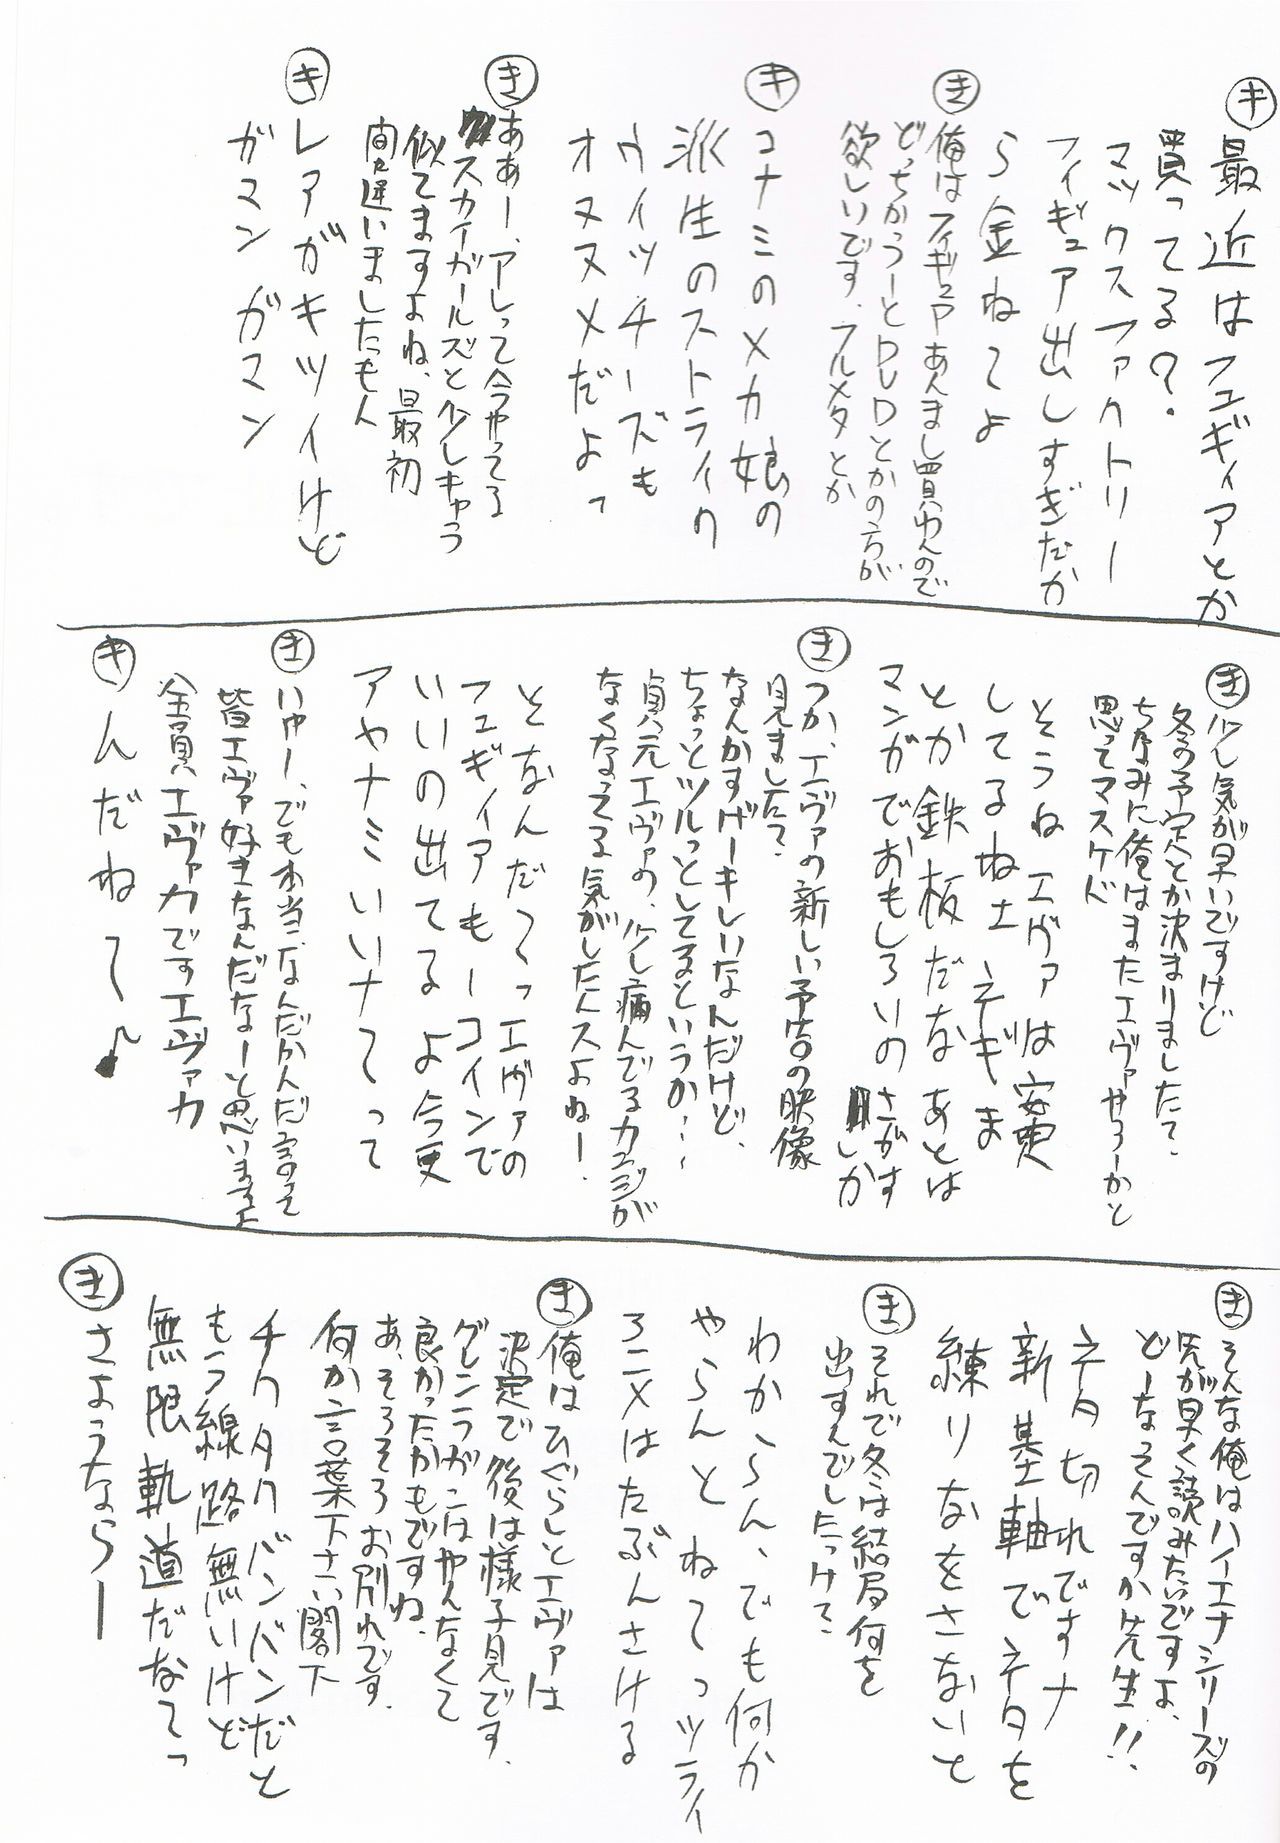 キ 最近はフュギィアとか
買ってる?
マックスファクトリー
フィギュア出しすぎだか
ら金ねてよ
き 俺はフィギュアあんまし買わんので
どっちかつーとDVDとかの方が
欲しいです。フルメタとか
キ コナミのメカ娘の
派生のストライク
ウィッチーズも
オヌヌメだよっ
き あぁー、アレって今やってる
スカイガールズと少しキャラ
似てますよね、最初
間違いましたもん
キ レアがキツイけど
ガマンガマン
き 少し気が早いですけど
冬の予定とか決まりましたて?
ちなみに俺はまたエヴァやろーかと
思ってマスケド
そうねエヴァは安更
してるね土ネギま
とか鉄板だなあとは
マンガでおもしろいのさがす
しか
き つか、エヴァの新しい予告の映像
見ましたて?
なんかすげーキレイなんだけど、
ちょっとツルっとしてるというか…
貞元エヴァの、少し病んでるカンジが
なくなってる気がしたんスよねー!
となんだてっエヴァの
フュギィアもーコインで
いいの出てるよ今更
アヤナミいいナてって
き いやー、でも本当、なんだかんだ言って
皆エヴァ好きなんだなーと思いますよ
全員、エヴァカですエヴァカ
キ んだねて♪
き そんな俺はハイエナシリーズの
先が早く読みたいですよ、
どーなるんですか先生!!
ネタ切れですナ
新基軸でネタを
練りなをさないと
き それで冬は結局何を
出すんでしたっけて?
わからん、でも何か
やらんとねてっツライ
ろニメはたぶんさける
き 俺はひぐらしとエヴァは
決定で後は様子見です。
グレンラガンはやんなくて
良かったかもですね。
あ、そろそろお別れです。
何か言葉下さい閣下
チクタクバンバンだと
もう線路無いけど
無限軌道だなてっ
き さようならー